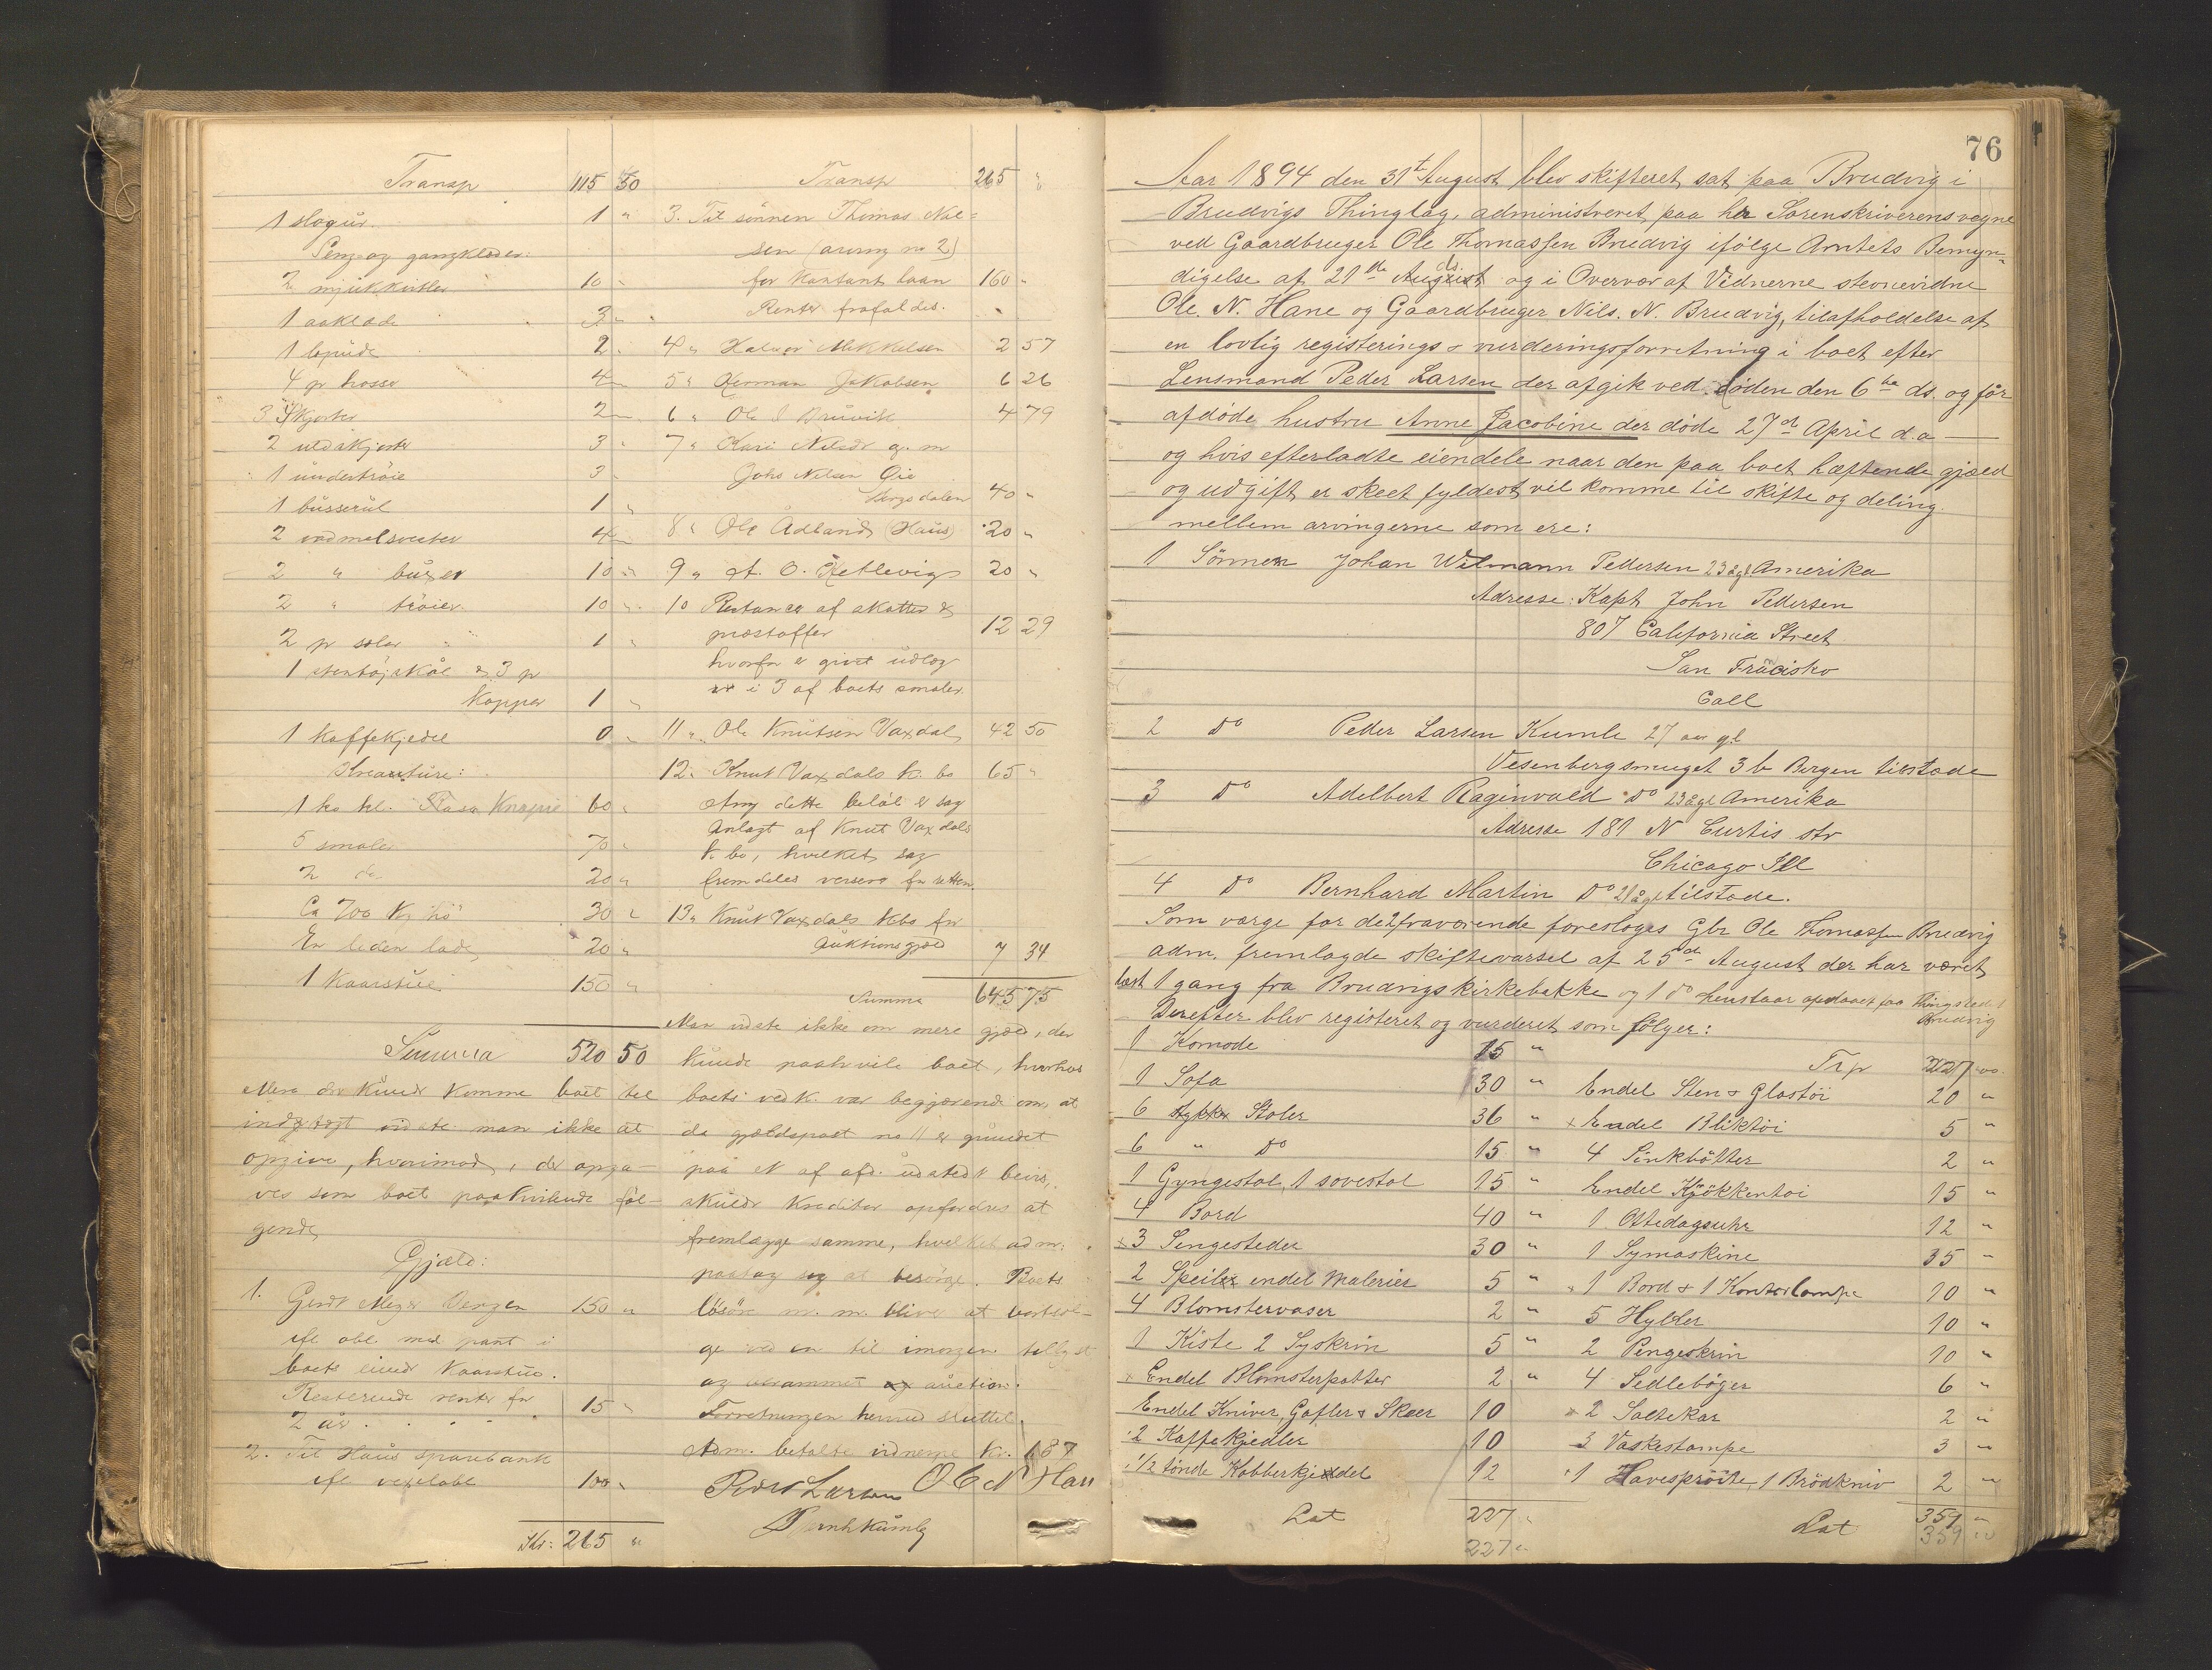 Transp 115 50
1 slogur. 1 "
Senge og gangklæder:
2 mjukkitler 10 "
1 aaklæde 3 "
1 lopude 2 "
4 pr hosor 4 "
3 skjorter 2 "
2 uldskjorter 3 "
1 undertröie 3 "
1 busserul 1 "
2 vadmelsvester 4 "
2 " buxer 10 "
2 " tröier 10 "
2 pr soler 1 "
1 stentöjskål & 3 pr
kopper 1 "
1 kaffekjedel 0 "
Kreature:
1 ko kl. Rasa Knapie 60 "
5 smaler 70 "
2 do 20 "
Ca 700 Kg hö 30 "
En leden lade 20 "
1 Kaarstue 150 "
Summa 520 50
Mere der kunde komme boet til
indtægt vidste man ikke at
opgive, hvorimod, der opga-
ves som boet paahvilende föl-
gende
Gjæld:
1. Gerdt Meyer Bergen 150 "
ifl obl. med pant i
boets eiende Kaarstue.
Resterende renter for
2 år. 15 "
2. Til Haus sparebank
ifl vexelobl 100 "
Kr: 265 "
Transp 265 "
3. Til sönnen Thomas Nel=
sen (arving no 2)
for kontant laan 160 "
Renter frafaldes.
4 " Halvor Mikkelsen 2 57
5 " Herman Jakobsen 6 26
6 " Ole I Bruvik 4 79
7 " Kari Nilsdr g. m
Johs Nilsen Øie
Bergsdalen 40 "
8 " Ole Ådland (Haus) 20 "
9 " A. O. Hetlevig 20 "
10 Restancer af skatter &
præstoffer 12 29
hvorfor er givet udlæg
i 3 af boets smaler.
11 " Ole Knutsen Vaxdal 42 50
12 " Knut Vaxdals k. bo 65 "
Ang dette beløb er sag
anlagt af Knut Vaxdals
k. bo, hvilket sag
fremdeles versere for retten
13 " Knut Vaxdals kbo for
Auktionsgjæld 7 34
Summa 645 75
Man vidste ikke om mere gjæld, der
kunde paahvile boet, hvorhos
boets vedk. var begjærende om, at
da gjældspost no 11 er grundet
paa et af afd. udstedt bevis,
skulde kreditor opfordres at
fremlægge samme, hvilket adm.
paatog sig at besörge. Boets
lösöre m. m. bliver at bortsæl-
ge ved en til imorgen tillyst
og berammet auction.
Forretningen hermed sluttet.
Adm. betalte vidnerne Kr. 1 87
Peder Larsen Ole N Han
Bernh Kumle
76
Aar 1894 den 31t August blev skifteret sat paa Brudvig i
Brudvigs Thinglag, administreret paa hr Sorenskriverens vegne
ved Gaardbruger Ole Thomassen Brudvig ifölge Amtets Bemyn-
digelse af 21de ds. August og i Overvær af Vidnerne stevnevidne
Ole. N. Hane og Gaardbruger Nils. N. Brudvig, tilafholdelse af
en lovlig registerings & vurderingsforretning i boet efter
Lensmand Peder Larsen der afgik ved døden den 6te ds. og før
afdöde hustru Anne Jacobine der döde 27de April d.a
og hvis efterladte eiendele naar den paa boet hæftende gjæld
og udgift er skeet fyldest vil komme til skifte og deling
mellem arvingerne som ere:
1 Sönnen Johan Wilmann Pedersen 23 åg. Amerika
Adresse: Kapt John Pedersen
807 California Street
San Francisko
Call
2 do Peder Larsen Kumle 27 aar gl
Vesenbergsmuget 3 b Bergen tilstede
3 do Adelbert Raginvald do 23 åg Amerika
Adresse 181 N Curtis str
Chicago Ill
4 do Bernhard Martin do 21 åg tilstede.
Som værge for de 2 fraværende foresloges Gbr Ole Thomassen Brudvig
adm. fremlagde skiftevarsel af 25de August der har været
læst 1 gang fra Brudvigs kirkebakke og 1 do opslaaet paa Thingstedet
Brudvig
Derefter blev registeret og vurderet som fölger:
1 Komode 15 "
1 Sofa 30 "
6 Stykker Stoler 36 "
6 " do 15 "
1 Gyngestol, 1 sovestol 15 "
4 Bord 40 "
x 3 Sengesteder 30 "
2 Speiler endel malerier 5 "
4 Blomstervaser 2 "
1 Kiste 2 Syskrin 5 "
x Endel Blomsterpotter 2 "
Endel Kniver, Gafler & Skeer 10
2 Kaffekjedler 10
1/2 tönde Kobberkjeddel 12
Lat 227 "
227 "
Trp 227 00
Endel Sten & Glastöi 20 "
x Endel Bliktöi 5 "
4 Sinkbötter 2 "
Endel Kjökkentöi 15 "
1 Ottedagsuhr 12 "
1 Symaskine 35 "
1 Bord & 1 Kontorlampe 10 "
5 Hylder 10 "
2 Pengeskrin 10 "
4 Sedlebøger 6 "
2 Saltekar 2 "
3 Vaskestampe 3 "
1 Havespröite, 1 Brödkniv 2 "
Lat 359 "
359 "